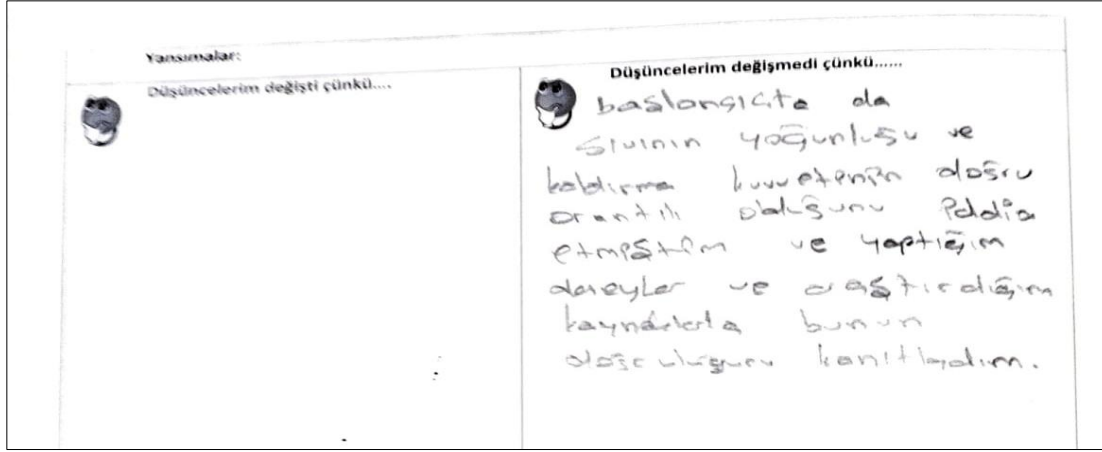 Yansımalar:
Düşüncelerim değişti çünkü....
Düşüncelerim değişmedi çünkü......
başlangıçta da
sıvının yoğunluğu ve
kaldırma kuvvetenin doğru
orantılı olduğunu iddia
etmiştim ve yaptığım
deneyler ve araştırdığım
kaynaklarla bunun
doğruluğunu kanıtladım.